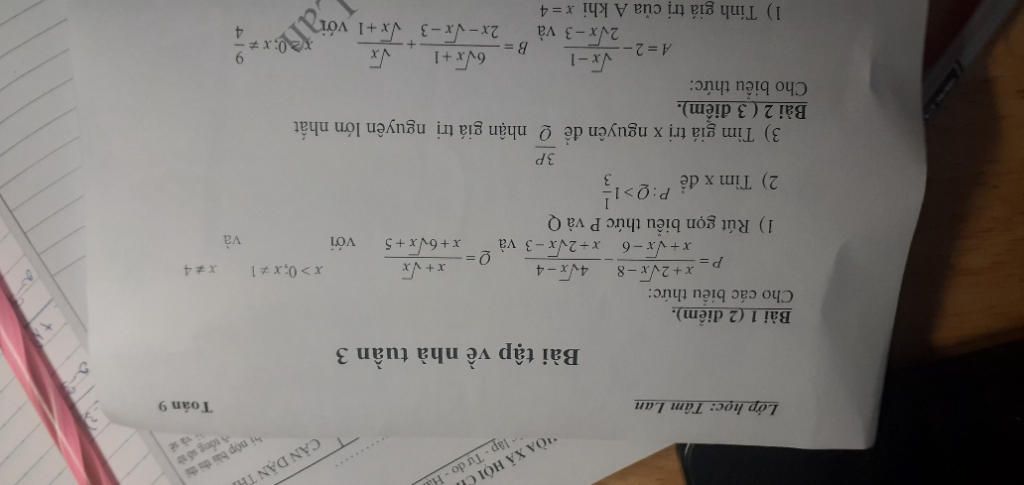 Lớp học: Tâm Lan Toán 9
Bài tập về nhà tuần 3
Bài 1 (2 điểm).
Cho các biểu thức:
P = \frac{x+2\sqrt{x}-8}{x+\sqrt{x}-6} - \frac{4\sqrt{x}-4}{x+2\sqrt{x}-3} và Q = \frac{x+\sqrt{x}}{x+6\sqrt{x}+5} với x > 0; x ≠ 1 và x ≠ 4
1) Rút gọn biểu thức P và Q
2) Tìm x để P : Q > 1\frac{1}{3}
3) Tìm giá trị x nguyên để \frac{3P}{Q} nhận giá trị nguyên lớn nhất
Bài 2 ( 3 điểm).
Cho biểu thức:
A = 2 - \frac{\sqrt{x}-1}{2\sqrt{x}-3} và B = \frac{6\sqrt{x}+1}{2x-\sqrt{x}-3} + \frac{\sqrt{x}}{\sqrt{x}+1} với x ≥ 0; x ≠ \frac{9}{4}
1) Tính giá trị của A khi x = 4
Lan
HÒA XÃ HỘI CH
lập - Tự do - Hạ
CĂN DẶN TH